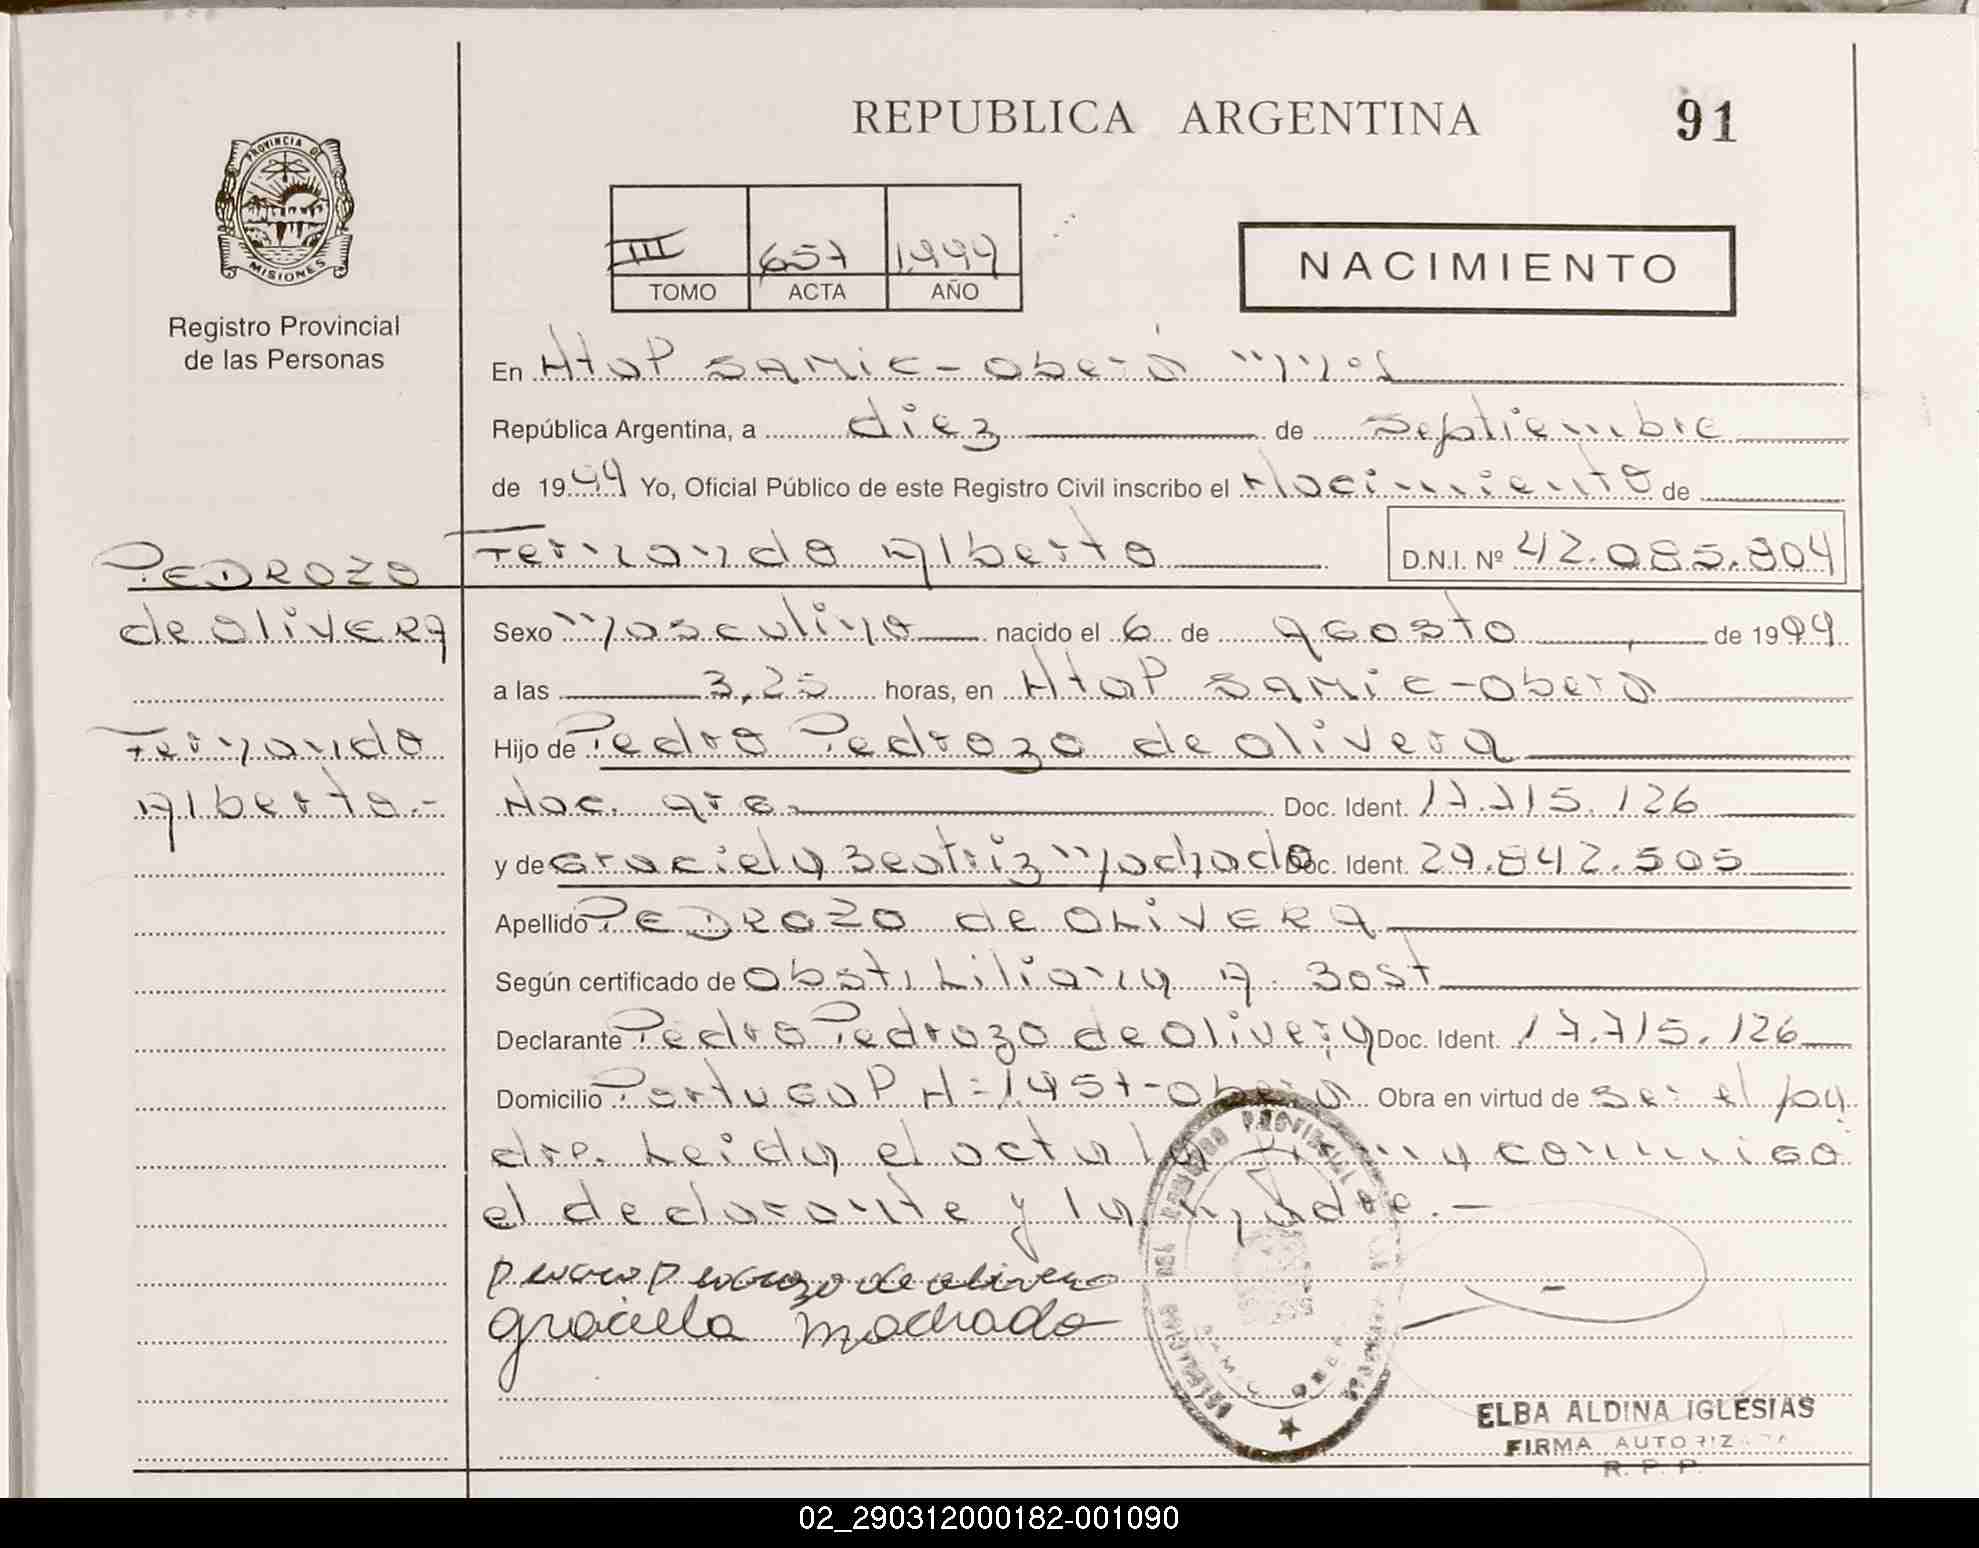 REPUBLICA ARGENTINA
91
PROVINCIA DE
MISIONES
Registro Provincial
de las Personas
III 657 1.999
TOMO ACTA AÑO
NACIMIENTO
En Htal SAMIC - Oberá Mnes
República Argentina, a diez de Septiembre
de 1999 Yo, Oficial Público de este Registro Civil inscribo el Nacimiento de
PEDROZO
de OliVERA
Fernando
Alberto.-
Fernando Alberto
D.N.I. Nº 42.085.804
Sexo Masculino nacido el 6 de agosto de 1999
a las 3,25 horas, en Htal SAMIC - Oberá
Hijo de Pedro Pedrozo de Olivera
Nac. arg. Doc. Ident. 17.715.126
y de Graciela Beatriz Machado Doc. Ident. 29.842.505
Apellido PEDROZO de OLIVERA
Según certificado de Obst. Liliana A. Bost
Declarante Pedro Pedrozo de Olivera Doc. Ident. 17.715.126
Domicilio Portugal N= 1.457 - Oberá Obra en virtud de ser el pa
dre. Leida el acta la firma conmigo
el declarante y la madre. -
Pedro Pedrozo de olivera
graciela machado
REGISTRO PROVINCIAL
ELBA ALDINA IGLESIAS
FIRMA AUTORIZADA
R. P. P.
02_290312000182-001090